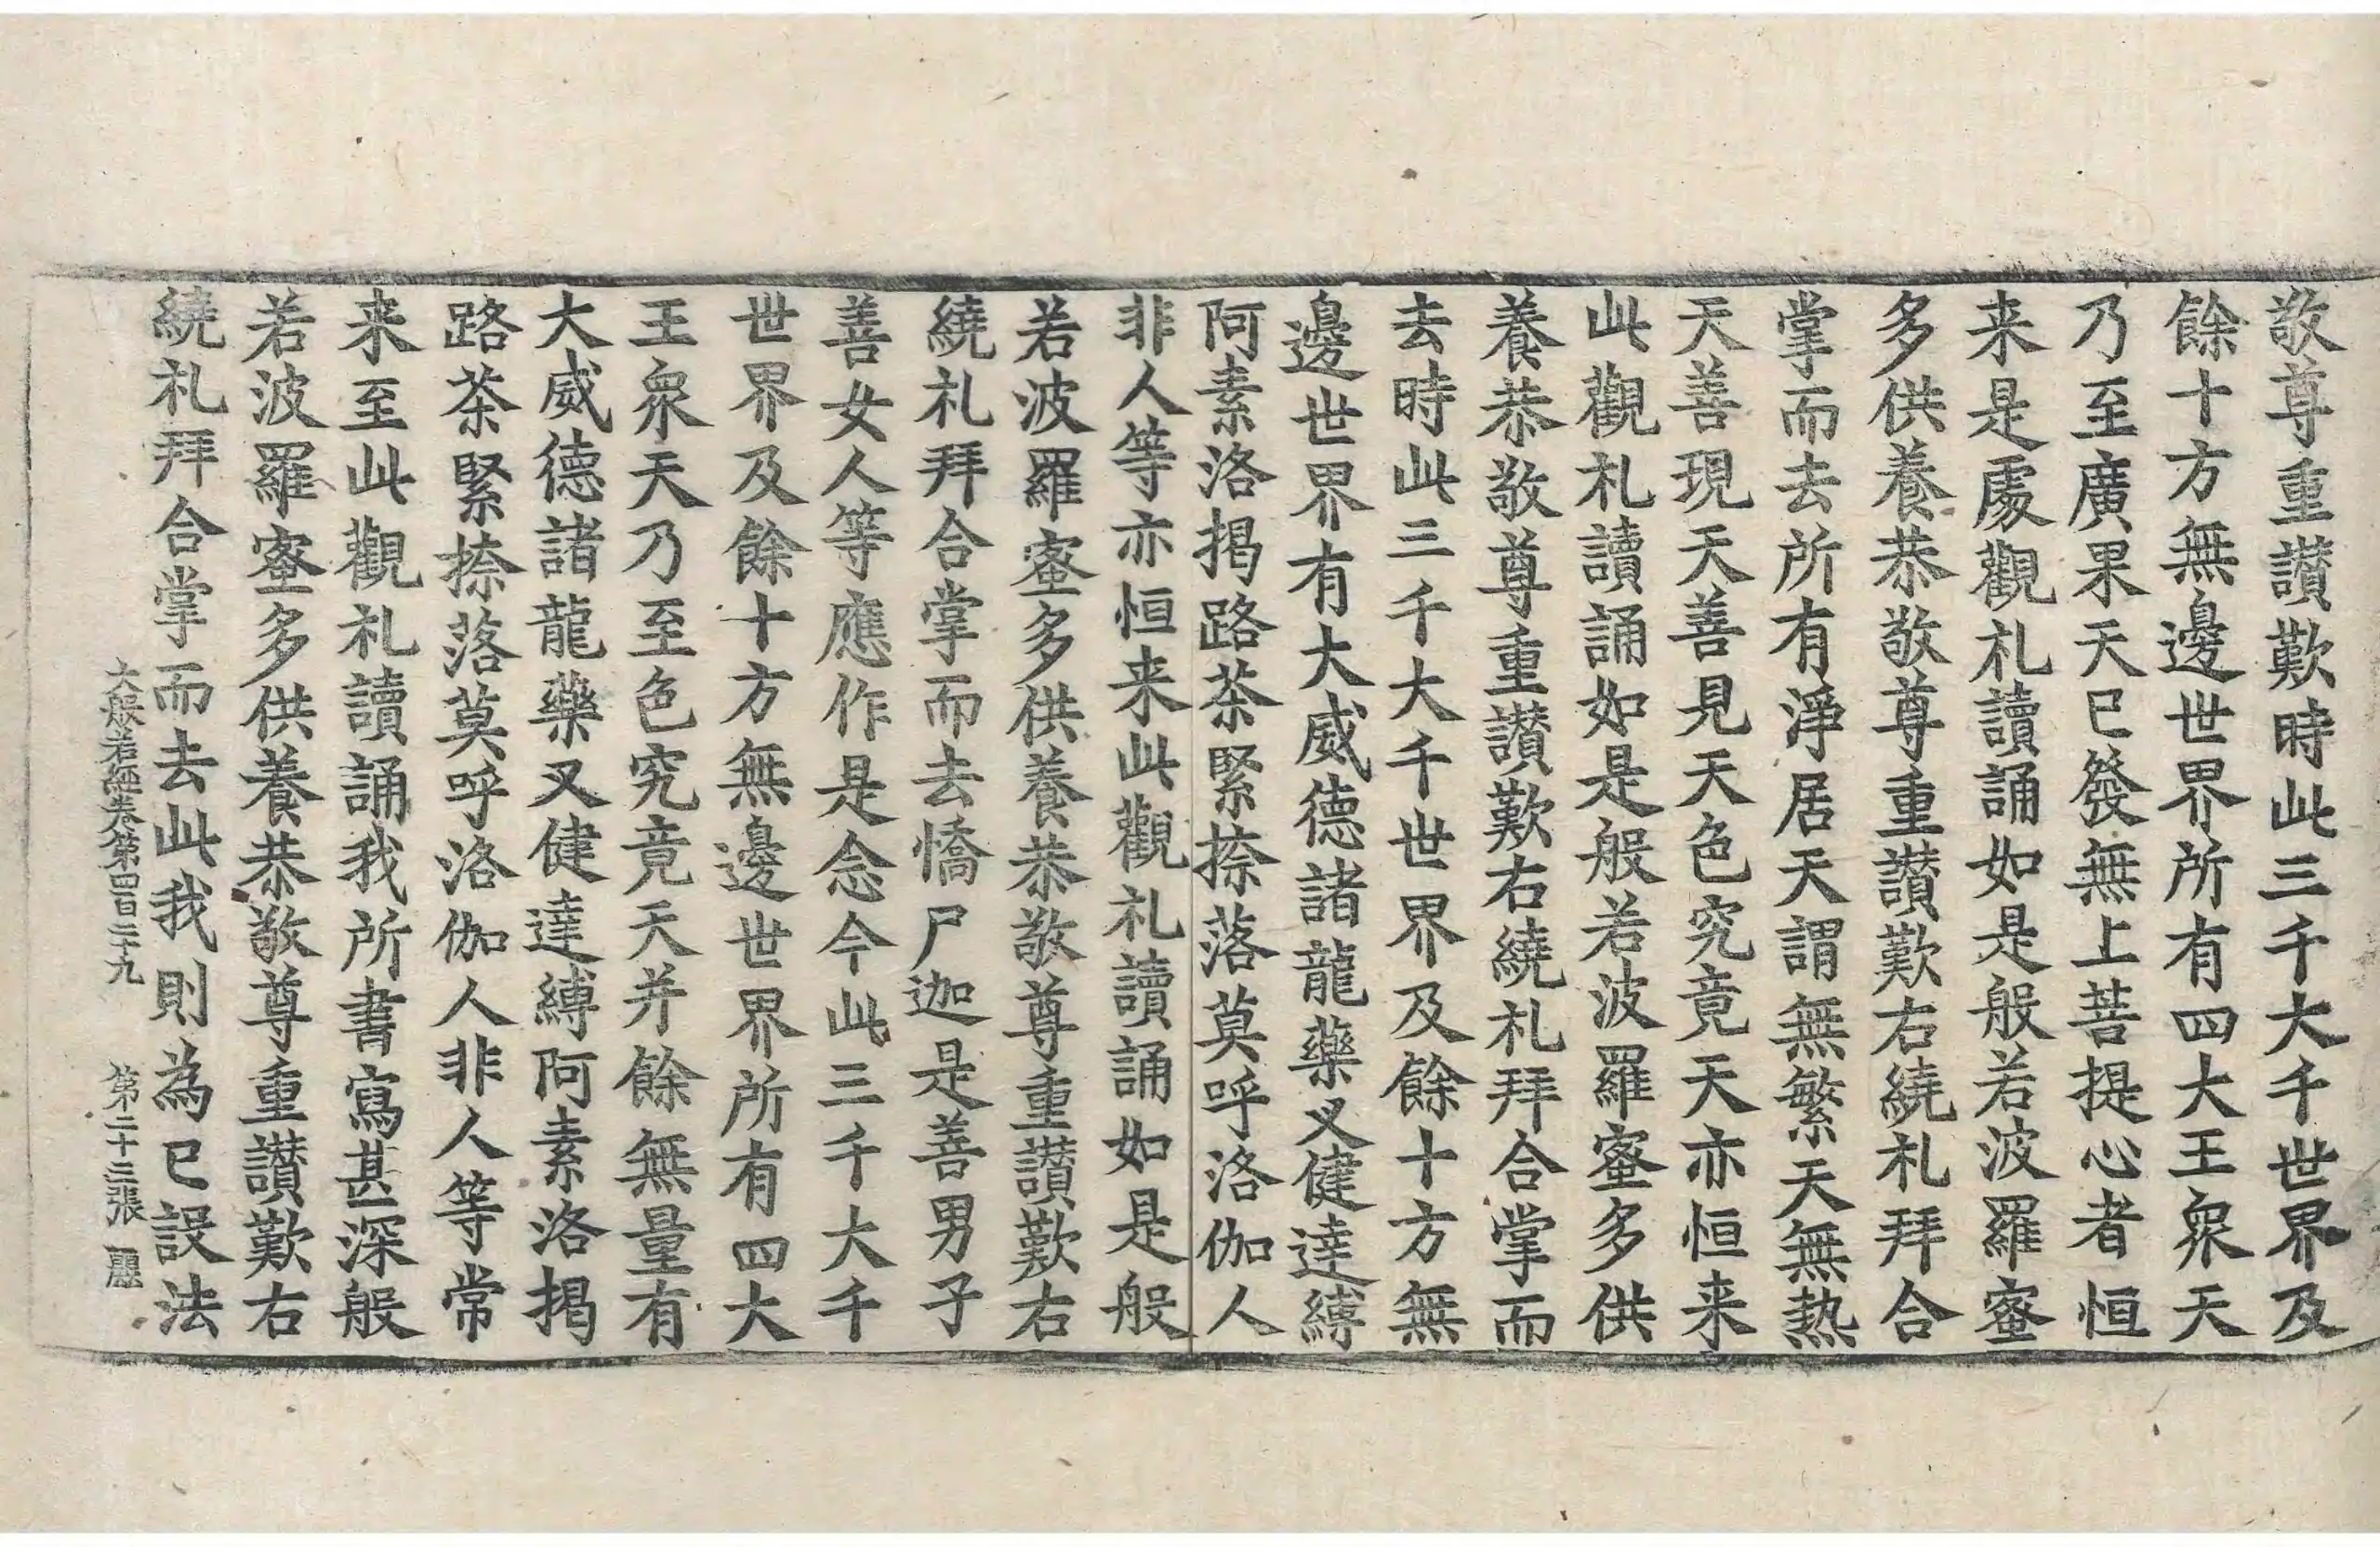 敬尊重讃歎時此三千大千世界及
餘十方無邊世界所有四大王衆天
乃至廣果天已發無上菩提心者恒
来是處觀礼讀誦如是般若波羅蜜
多供養恭敬尊重讃歎右繞礼拜合
掌而去所有淨居天謂無繁天無熱
天善現天善見天色究竟天亦恒来
此觀礼讀誦如是般若波羅蜜多供
養恭敬尊重讃歎右繞礼拜合掌而
去時此三千大千世界及餘十方無
邊世界有大威德諸龍藥叉健達縛
阿素洛揭路荼緊捺落莫呼洛伽人
非人等亦恒来此觀礼讀誦如是般
若波羅蜜多供養恭敬尊重讃歎右
繞礼拜合掌而去憍尸迦是善男子
善女人等應作是念今此三千大千
世界及餘十方無邊世界所有四大
王衆天乃至色究竟天并餘無量有
大威德諸龍藥叉健達縛阿素洛揭
路荼緊捺落莫呼洛伽人非人等常
来至此觀礼讀誦我所書寫甚深般
若波羅蜜多供養恭敬尊重讃歎右
繞礼拜合掌而去此我則為已設法
大般若經卷第四百二十九 第二十三張 麗